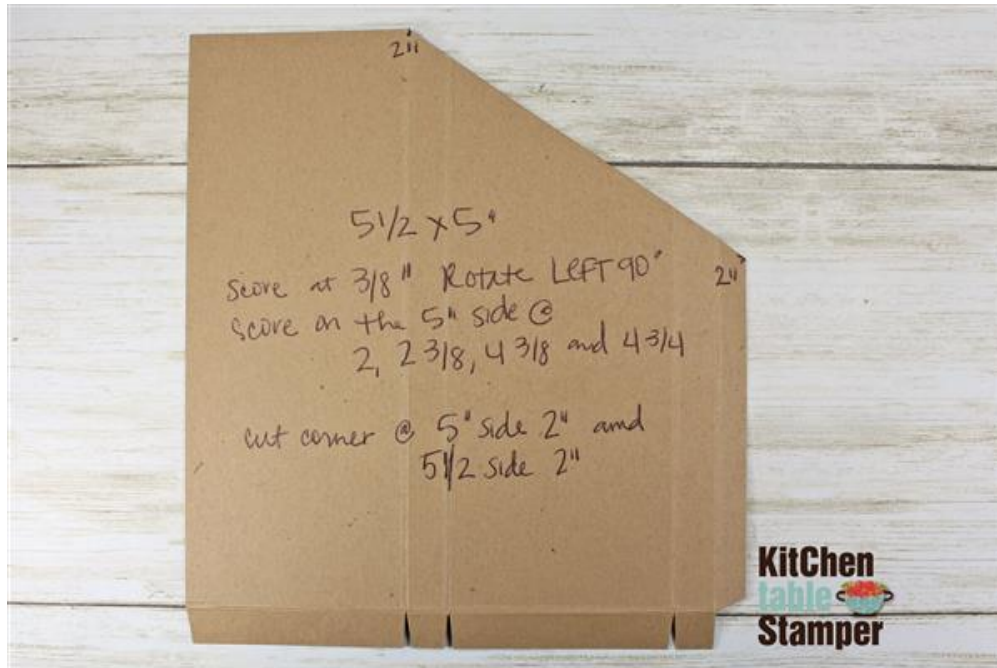 2"
5 1/2 x 5"
2"
Score at 3/8" Rotate LEFT 90°
Score on the 5" side @
2, 2 3/8, 4 3/8 and 4 3/4
cut corner @ 5" side 2" and
5 1/2 side 2"
KitChen
table
Stamper